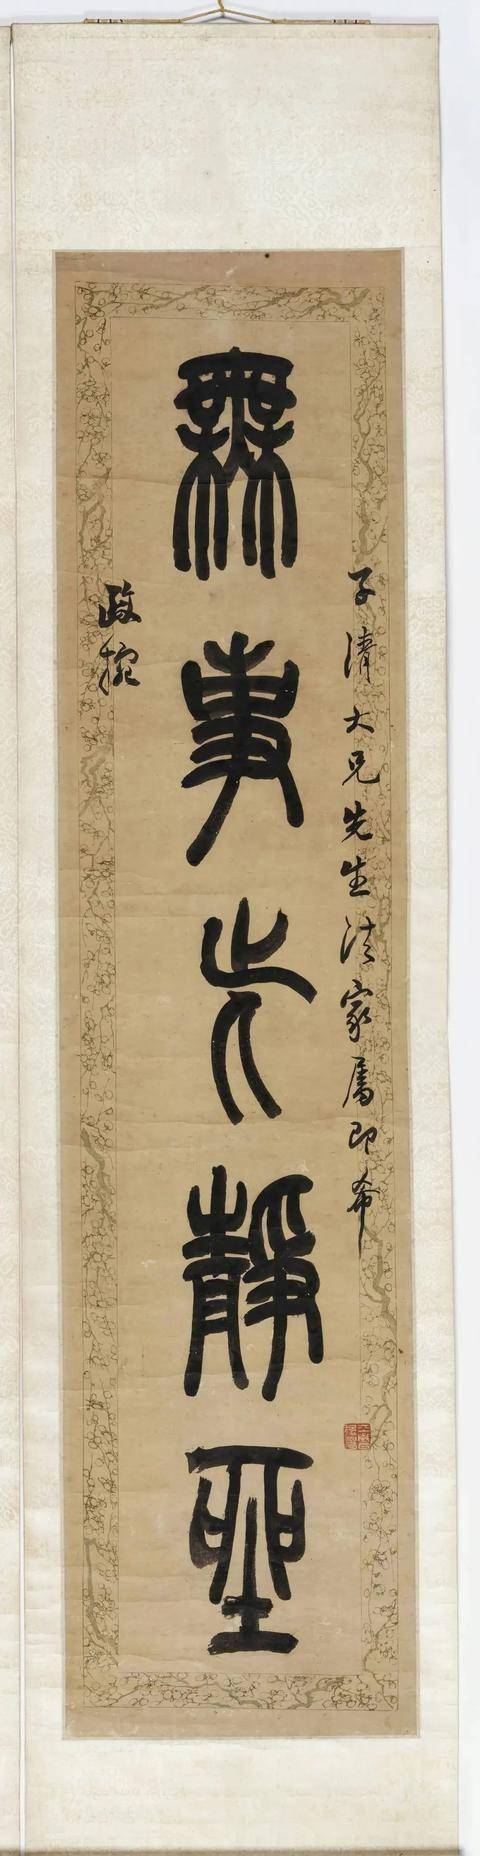 子清大兄先生法家属即希
無事此靜坐
政捥